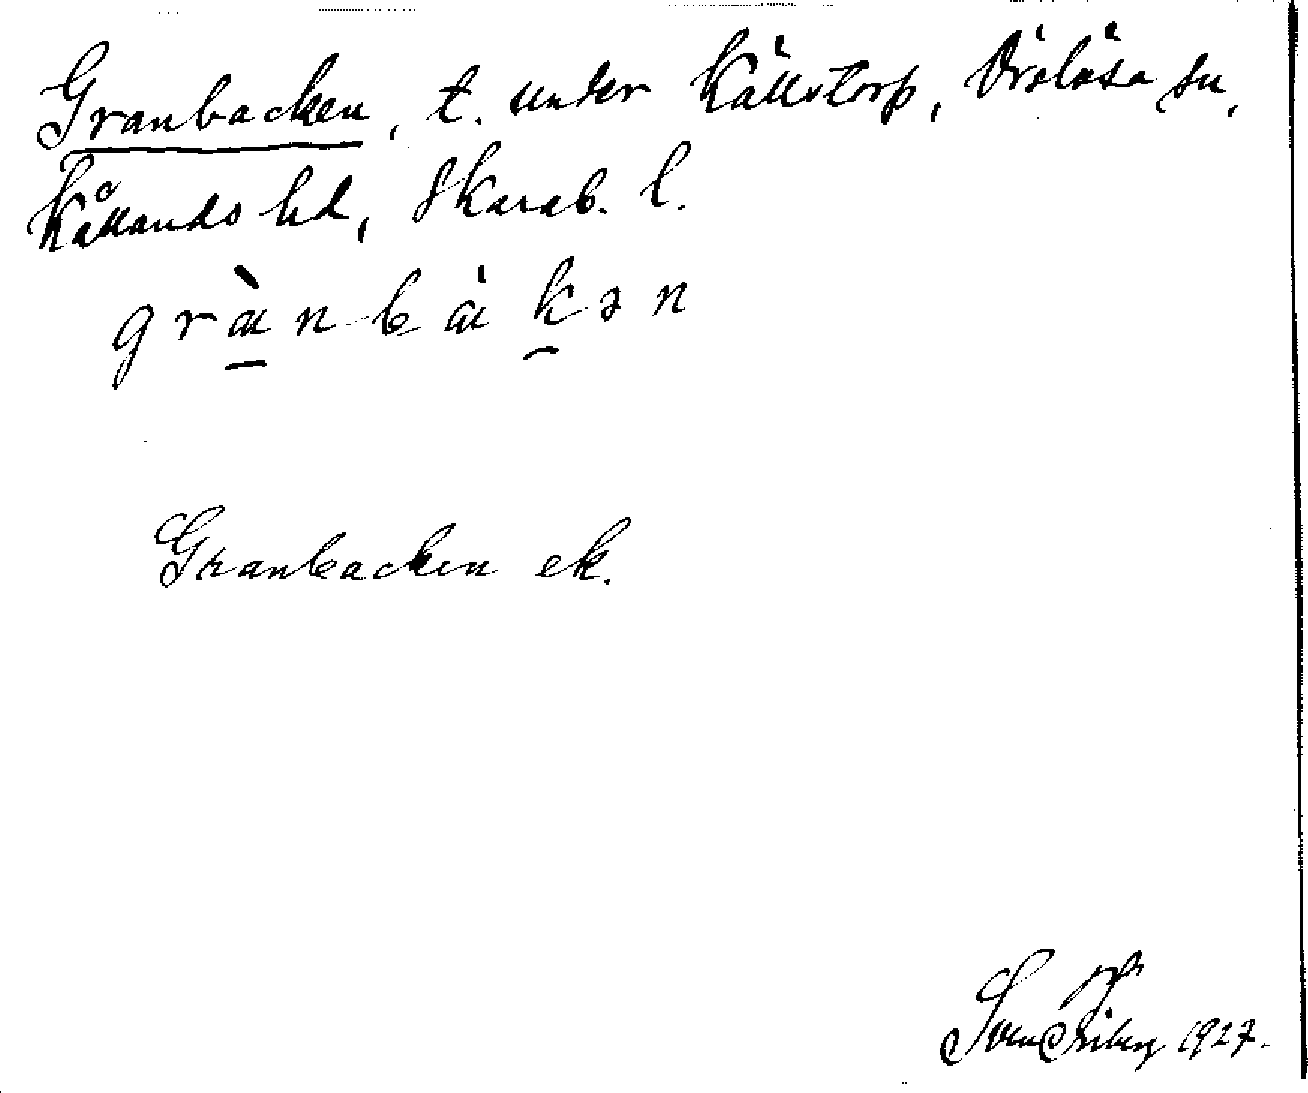 Granbacken, t. under Källstorp, Örslösa sn,
Kållands hd, Skarab. l.
grànbàkən
Granbacken ek.
Sven Friberg 1927.